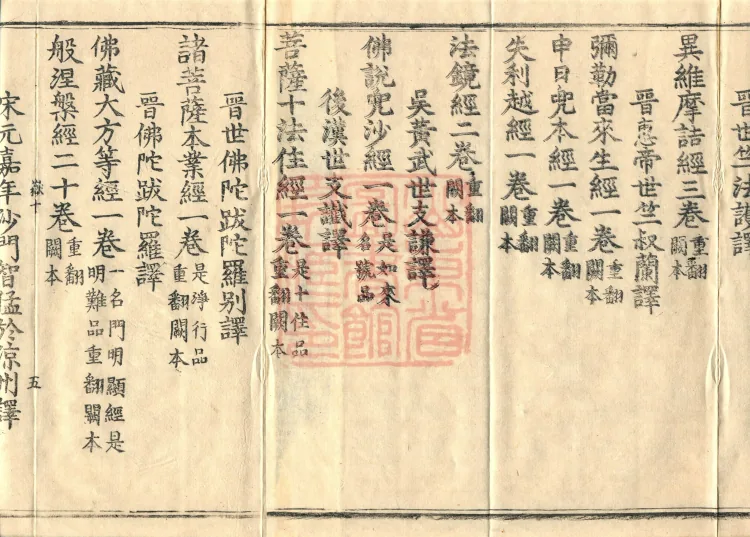 晉世竺法護譯
異維摩詰經三卷 重翻闕本
晉惠帝世竺叔蘭譯
彌勒當來生經一卷 重翻闕本
申日兜本經一卷 重翻闕本
失利越經一卷 重翻闕本
法鏡經二卷 重翻闕本
吳黃武世支謙譯
佛說兜沙經一卷 是如來名號品
後漢世支讖譯
菩薩十法住經一卷 是十住品重翻闕本
晉世佛陀跋陀羅別譯
諸菩薩本業經一卷 是淨行品重翻闕本
晉佛陀跋陀羅譯
佛藏大方等經一卷 一名門明顯經是明難品重翻闕本
般涅槃經二十卷 重翻闕本
嶽十 五
宋元嘉年沙門智猛於涼州譯